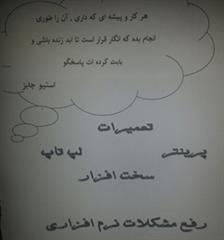 هر کار و پیشه ای که داری , آن را طوری
انجام بده که انگار قرار است تا ابد زنده باشی و
بابت کرده ات پاسخگو
استیو جابز
تعمیرات
پرینتر لپ تاپ
سخت افزار
رفع مشکلات نرم افزاری